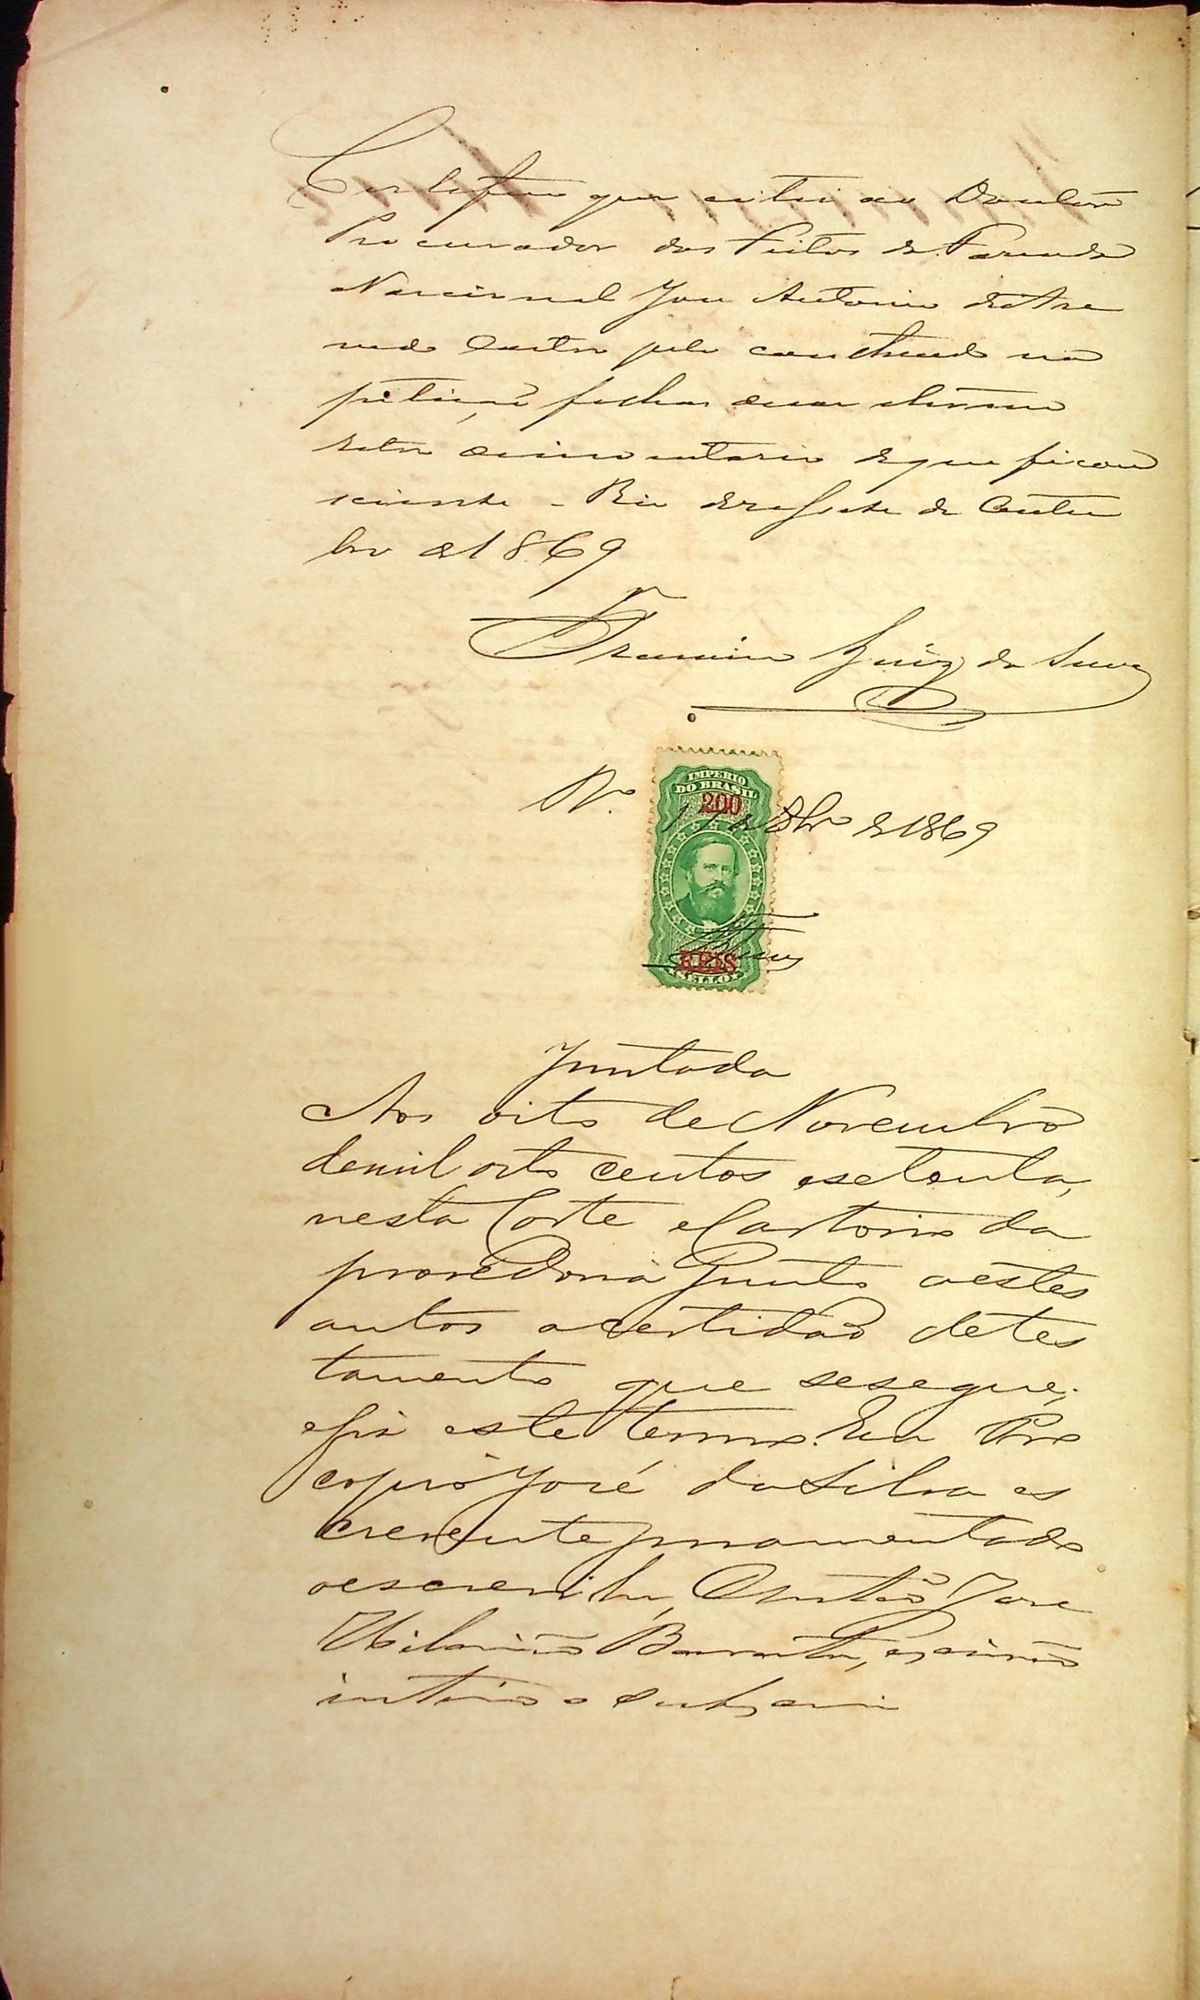 Certifico que citei ao Doutor
Procurador dos Feitos da Fazenda
Nacional José Antonio de Aze
vedo Castro pelo contheudo na
petição folhas duas
deste inventario de que ficou
sciente - Rio desasete de Outu
bro de 1869
da Silva
Rio 17 de 8bro de 1869
IMPERIO
DO BRASIL
200
REIS
SELLO
Juntada
Aos oito de Novembro
de mil oito centos e setenta,
nesta Corte e Cartorio da
provedoria Junto a estes
autos a certidão de tes
tamento que se segue;
e fiz este termo. Eu Pro
copio José da Silva es
crevente juramentado
o escrevi. Eu, Antão José
Hilarião Barata, escrivão
interino o subscrevi